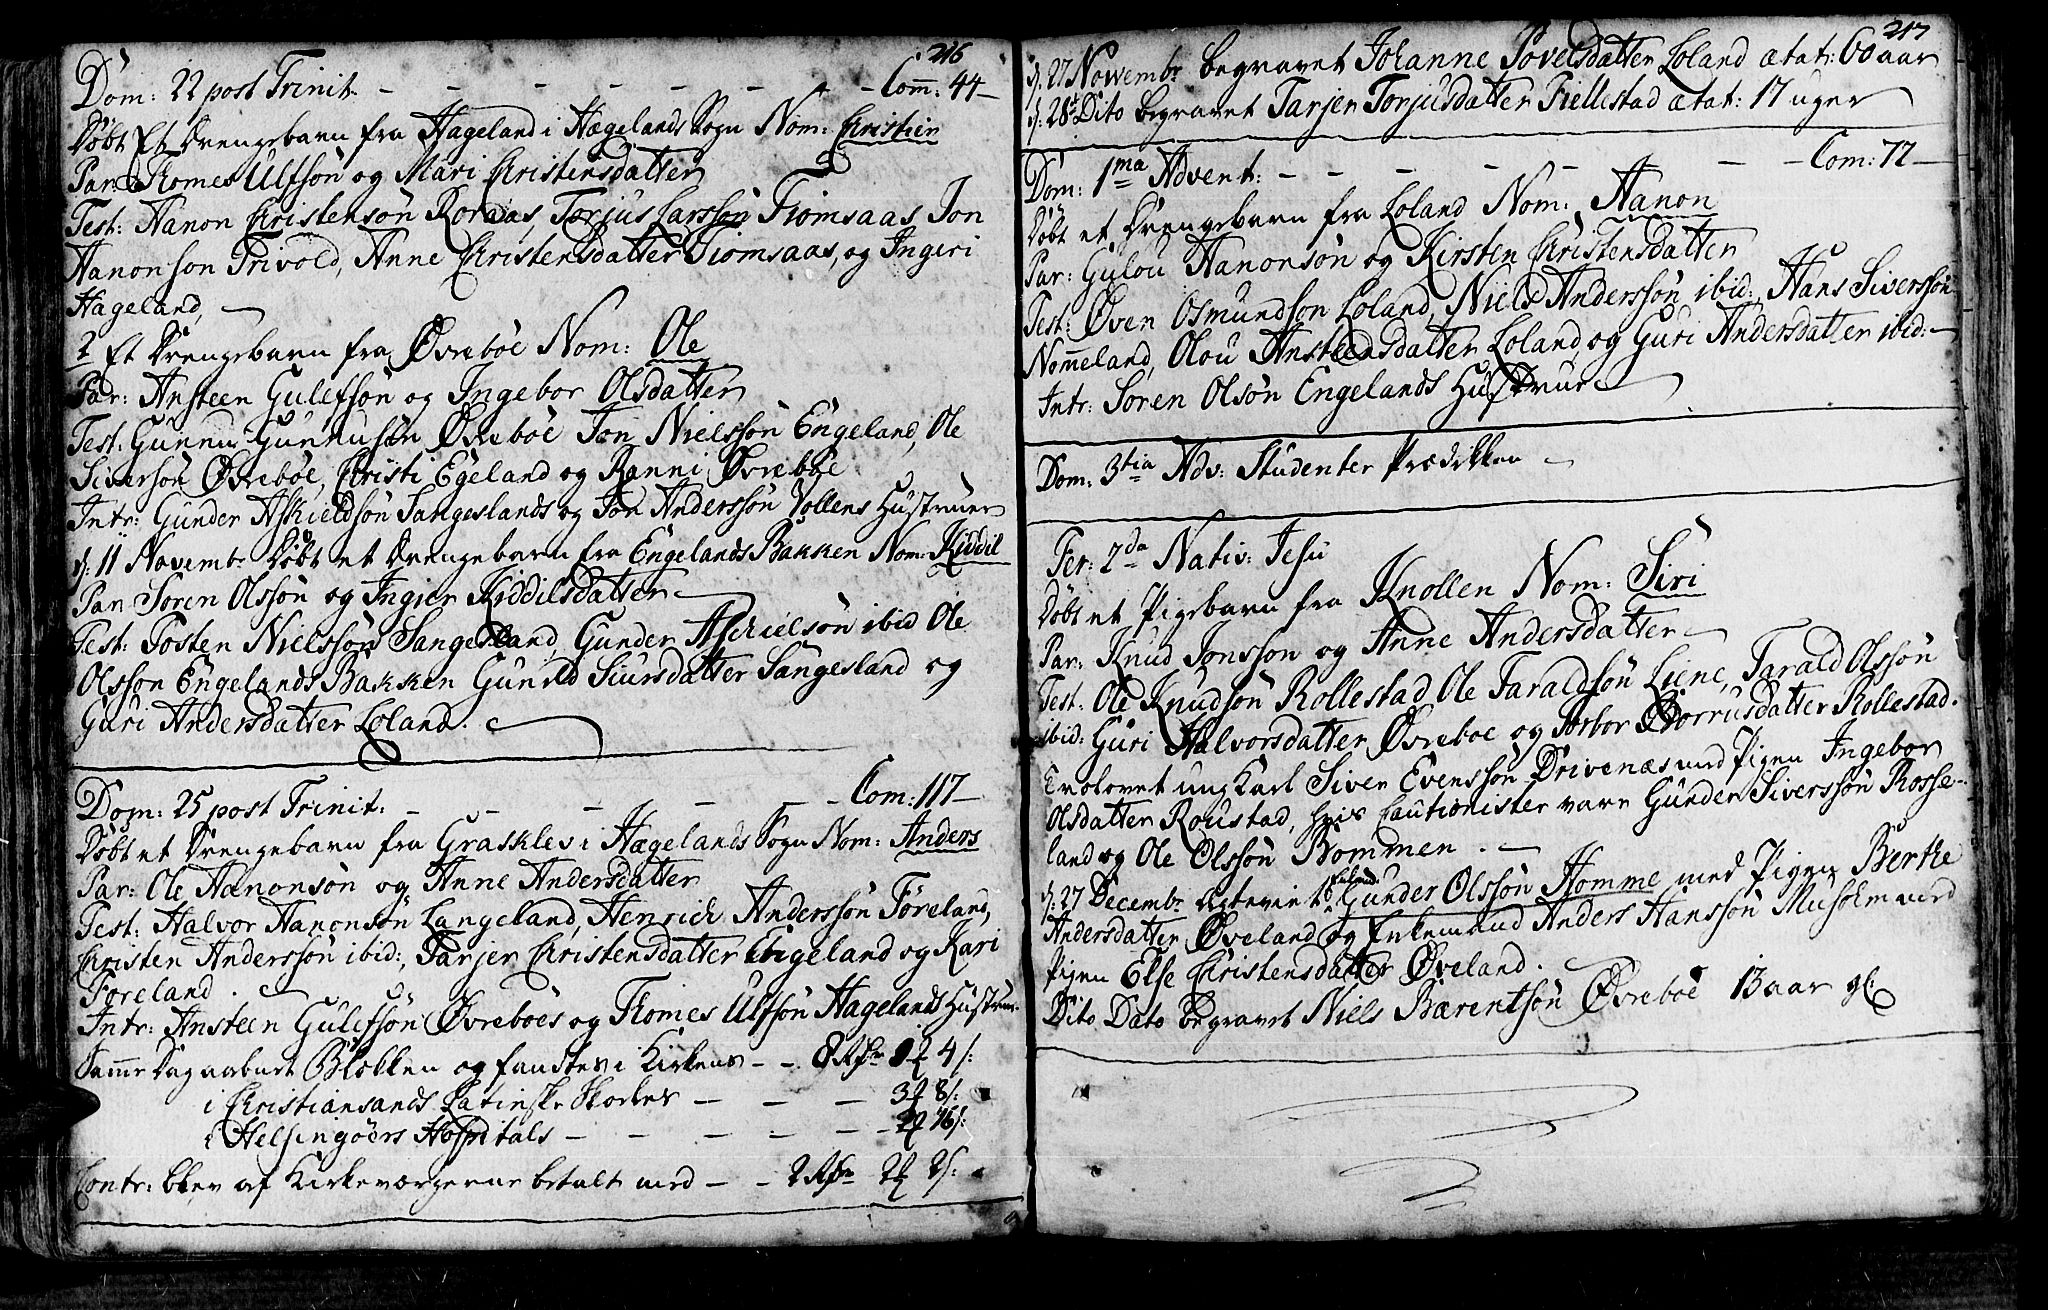 216
Dom: 22 post Trinit. - - - - - - - Com: 44 -
Døbt Et Drengebarn fra Hageland i Hægelands Sogn Nom: Christen
Par: Thomes Ulfsøn og Mari Christensdatter
Test: Hanon Christensøn Roraas, Torjus Larssøn Fiomsaas Jon
Hanonsøn Privold, Anne Christensdatter Fiomsaas, og Ingeri
Hageland,
2 Et Drengebarn fra Øvrebøe Nom: Ole
Par: Ansteen Gulefsøn og Ingebor Olsdatter
Test: Gunnu Gunnusøn Øvrebøe Jon Nielssøn Engeland, Ole
Siversøn Øvrebøe, Christi Egeland og Ranni Øvrebøe
Intr: Gunder Askieldsøn Sangeslands og Jon Anderssøn Vollens Hustruer
d: 11 Novembr Døbt et Drengebarn fra Engelands Bakken Nom: Kiddil
Par: Søren Olssøn og Ingier Kiddilsdatter
Test: Tosten Nielssøn Sangesland, Gunder Aschielsøn ibid Ole
Olsson Engelands Bakken Gunild Siursdatter Sangesland og
Guri Andersdatter Loland.
Dom: 25 post Trinit: - - - - - - Com: 117 -
Døbt et Drengebarn fra Graskles i Hægelands Sogn Nom: Anders
Par: Ole Aanonsøn og Anne Andersdatter
Test: Halvor Hanonsøn Langeland, Henrich Anderssøn Føreland,
Christen Anderssøn ibid:, Tarjer Christensdatter Engeland og Kari
Foreland.
Intr: Ansteen Gulefsøn Øvrebøes og Thomes Ulfsøn Hagelands Hustruer
Samme Dag aabnet Blokken og fandtes i Kirkens - - 8 Rdr 4 s:
i Christiansands Latinske Skoeles - - - 3 8 s:
i Helsingøers Hospitals - - - - - 16 s:
Contr: blev af Kirkeværgerne betalt med - - 2 Rdr 2 2 s:
217
d: 27 Novembr begravet Johanne Povelsdatter Loland ætat: 60 aar
d: 28 Dito begravet Tarjer Torjusdatter Fiellestad ætat: 17 uger
Dom: 1ma Advent: - - - - - - - Com: 72 -
Døbt et Drengebarn fra Loland Nom: Hanon
Par: Gulou Hanonsøn og Kirsten Christensdatter
Test: Øven Osmundson Loland, Niels Anderssøn ibid:, Hans Siverssøn
Nommeland, Olou Ansteensdatter Loland, og Guri Andersdatter ibid:
Intr: Soren Olsøn Engelands Hustrue
Dom: 3tia Adv: Studenter Prædikken
Fer: 2da Nativ: Jesu
Døbt et Pigebarn fra Knollen Nom: Siri
Par: Knud Jonsson og Anne Andersdatter
Test: Ole Knudsøn Rollestad, Ole Taraldsøn Liene, Tarald Olssøn
ibid: Guri Halvorsdatter Øvreboe og Torbor Borrusdatter Rollestad.
Trolovet ung Karl Siver Evenssøn Drivenæs med Pigen Ingebor
Olsdatter Roustad, hvis Cautionister vare Gunder Siverssøn Rosse-
land og Ole Olssøn Bommen.
d: 27 Decembr Egteviet Gunder Olssøn Homme med Pigen Berthe
Andersdatter Øveland og Enkemand Anders Hanssøn Musholm med
Pigen Else Christensdatter Øveland.
Dito Dato begravet Niels Bærentsøn Øvrebøe 13 aar gl: